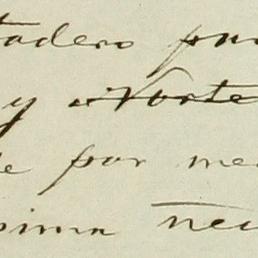 tadero pu
y Norte
e por me
sima neu